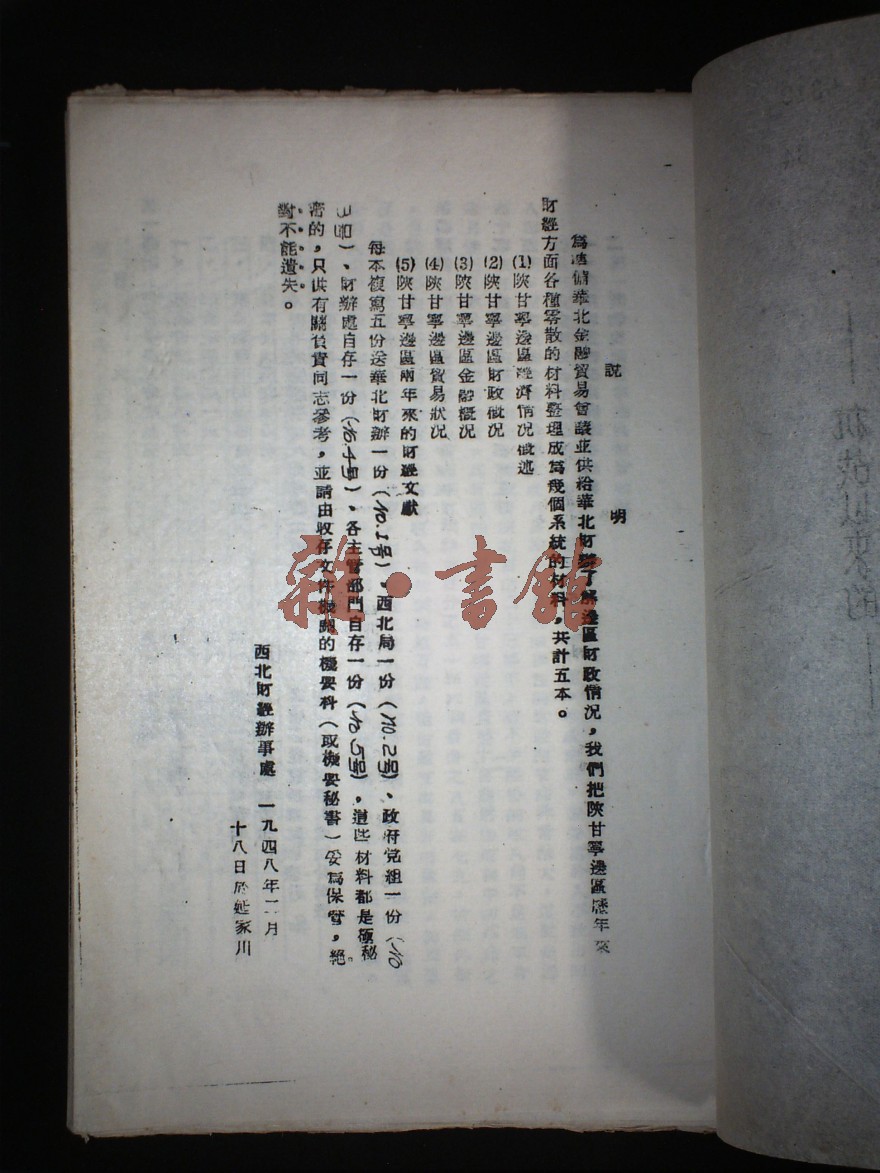 說明
爲準備華北金融貿易會議並供給華北財辦了解邊區財政情況，我們把陝甘寧邊區歷年來
財經方面各種零散的材料整理成爲幾個系統的材料，共計五本。
(1)陝甘寧邊區經濟情況概述
(2)陝甘寧邊區財政概況
(3)陝甘寧邊區金融概況
(4)陝甘寧邊區貿易狀況
(5)陝甘寧邊區兩年來的財經文獻
每本複寫五份送華北財辦一份(No.1号)，西北局一份(No.2号)、政府党組一份(No
3号)、財辦處自存一份(No.4号)，各主管部門自存一份(No.5号)。這些材料都是極秘
密的，只供有關負責同志參考，並請由收存文件機關的機要科(或機要秘書)妥爲保管，絕
對不能遺失。
西北財經辦事處 一九四八年二月
十八日於延家川
雜·書館